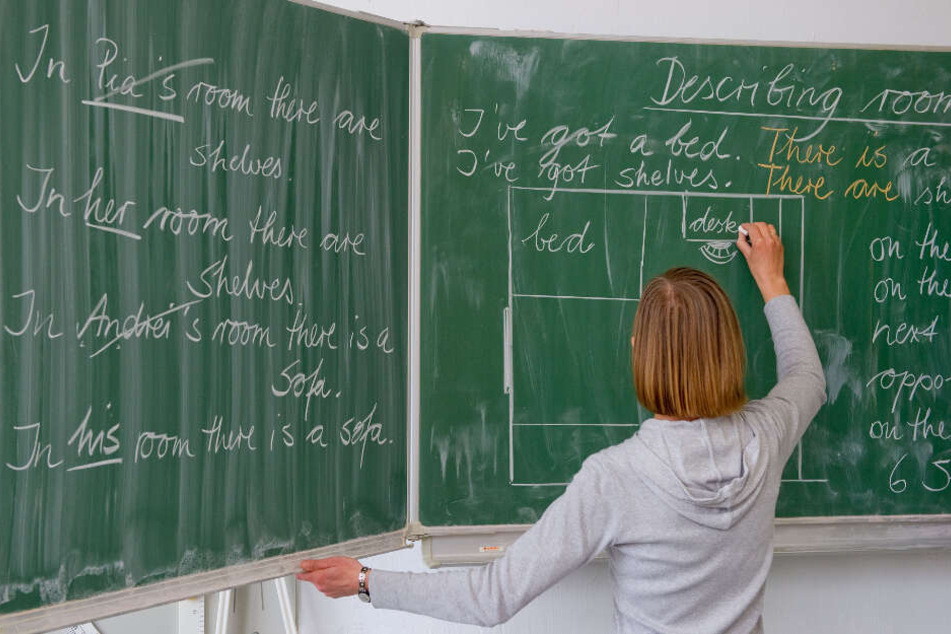 In Pia's room there are
shelves.
In her room there are
shelves.
In Andrei's room there is a
sofa.
In his room there is a sofa.
Describing room
I've got a bed. There is a
I've got shelves. There are sh
bed
desk
on the
on the
next
oppo
on the
6 5